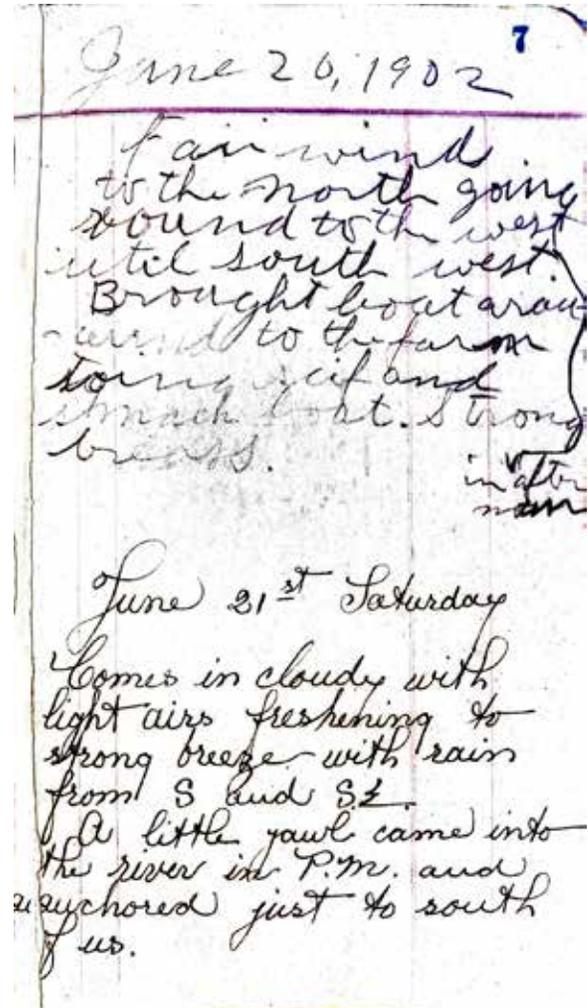 7
June 20, 1902
Fair wind
to the north going
round to the west
until south west.
Brought boat arou
-und to the farm
toing scif and
smack boat. Strong
breass.
in after
noon
June 21st Saturday
Comes in cloudy with
light airs freshening to
strong breeze with rain
from S and SE.
A little yawl came into
the river in P.M. and
anchored just to south
of us.